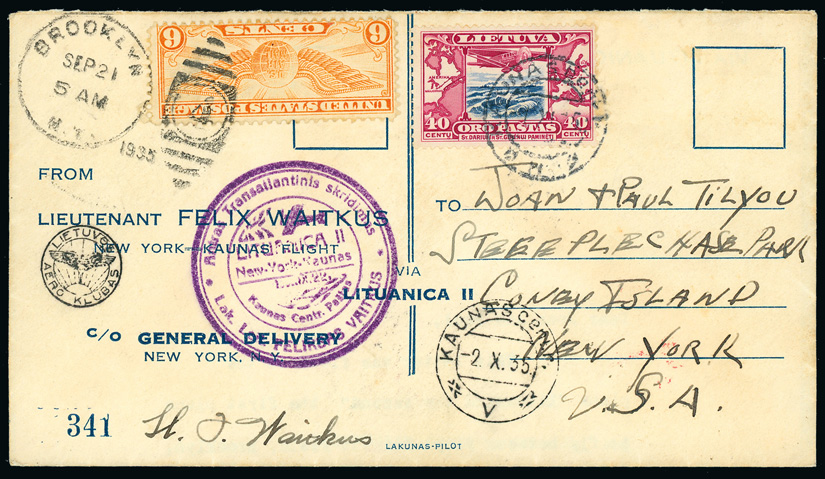 BROOKLYN
SEP 21
5 AM
N.Y.
1935
6 CENTS 6
UNITED STATES POSTAGE
LIETUVA
AMERIKA
40 CENTŲ
ORO PAŠTAS
40 CENTŲ
FROM
LIEUTENANT FELIX WAITKUS
NEW YORK—KAUNAS FLIGHT
LIETUVOS
AERO KLUBAS
C/O GENERAL DELIVERY
NEW YORK, N.Y.
Transatlantinis skridimas
LITUANICA II
New-York-Kaunas
Kaunas Centr. Paštas
Lak. Leit. FELIKSAS VAITKUS
VIA
LITUANICA II
TO JOAN + PAUL TILYOU
STEEPLECHASE PARK
CONEY ISLAND
NEW YORK
U.S.A.
KAUNAS CENTR.
-2. X. 35
V
341
Lt. F. Waitkus
LAKUNAS-PILOT